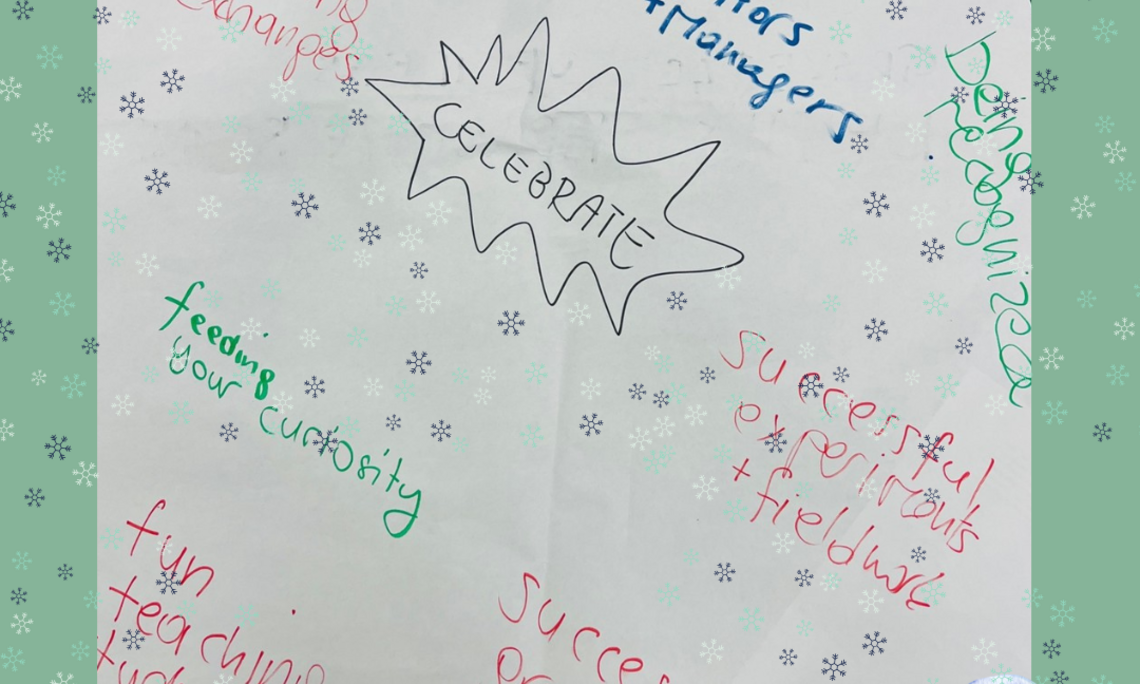 changes
+Managers
CELEBRATE
Being
recognized
feeding
your curiosity
successful
experiments
+ fieldwork
fun
teaching